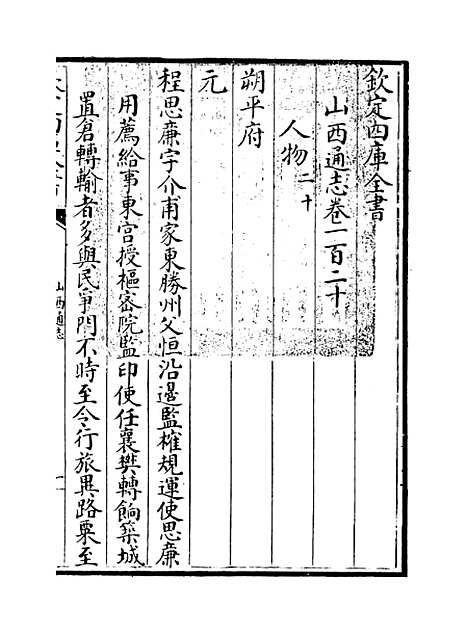 欽定四庫全書
山西通志卷一百二十
人物二十
朔平府
元
程思廉字介甫家東勝州父恒沿邊監榷規運使思廉
用薦給事東宮授樞宻院監印使任襄樊轉餉築城
置倉轉輸者多與民爭門不時至令行旅異路粟至
山西通志